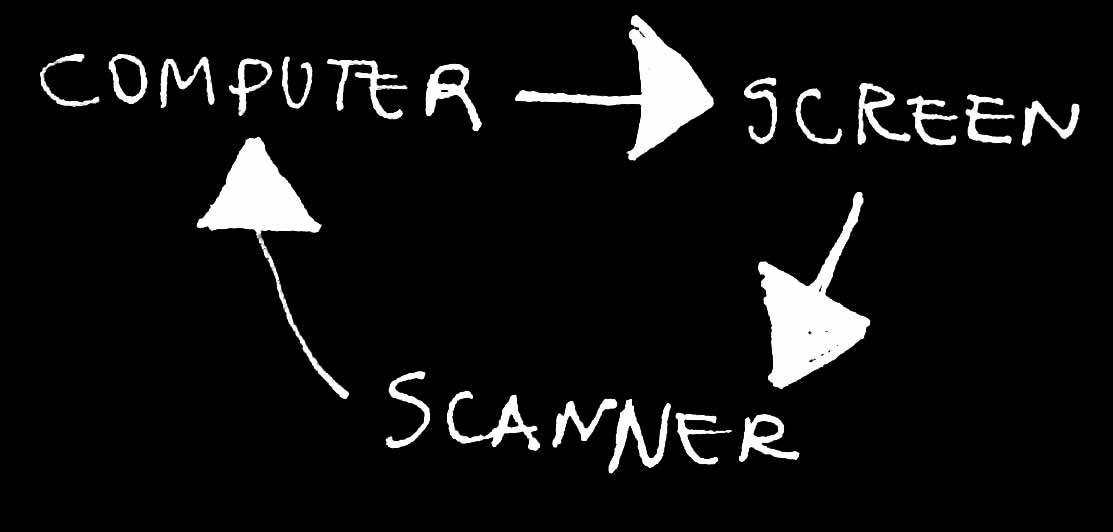 COMPUTER
SCREEN
SCANNER